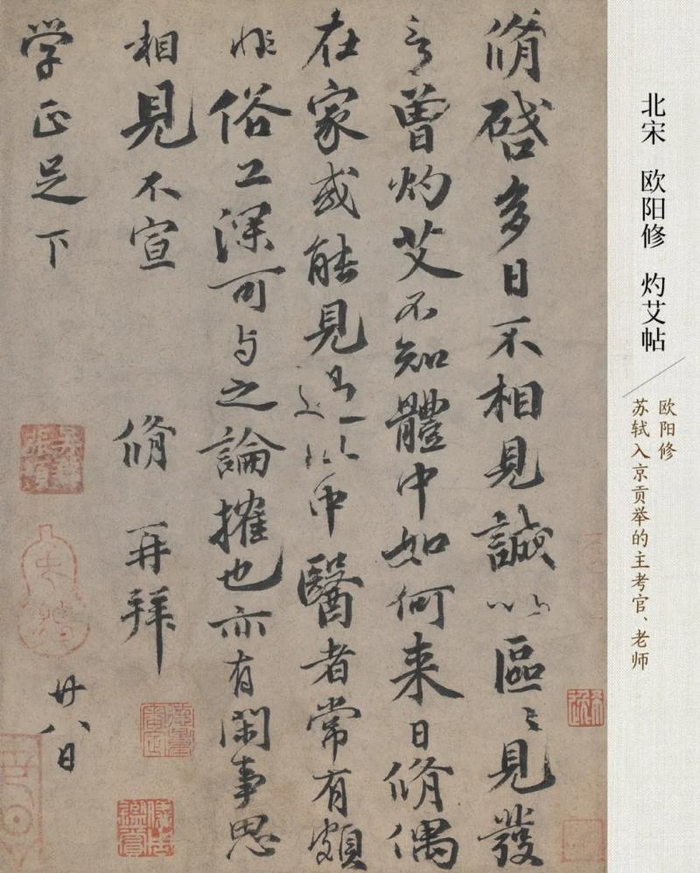 北宋 欧阳修 灼艾帖
欧阳修
苏轼入京贡举的主考官、老师
脩啓多日不相見誠以區〻見發
言曾灼艾不知體中如何来日脩偶
在家或能見過此中醫者常有頗
非俗工深可与之論搉也亦有閑事思
相見不宣 脩再拜
学正足下
廿八日